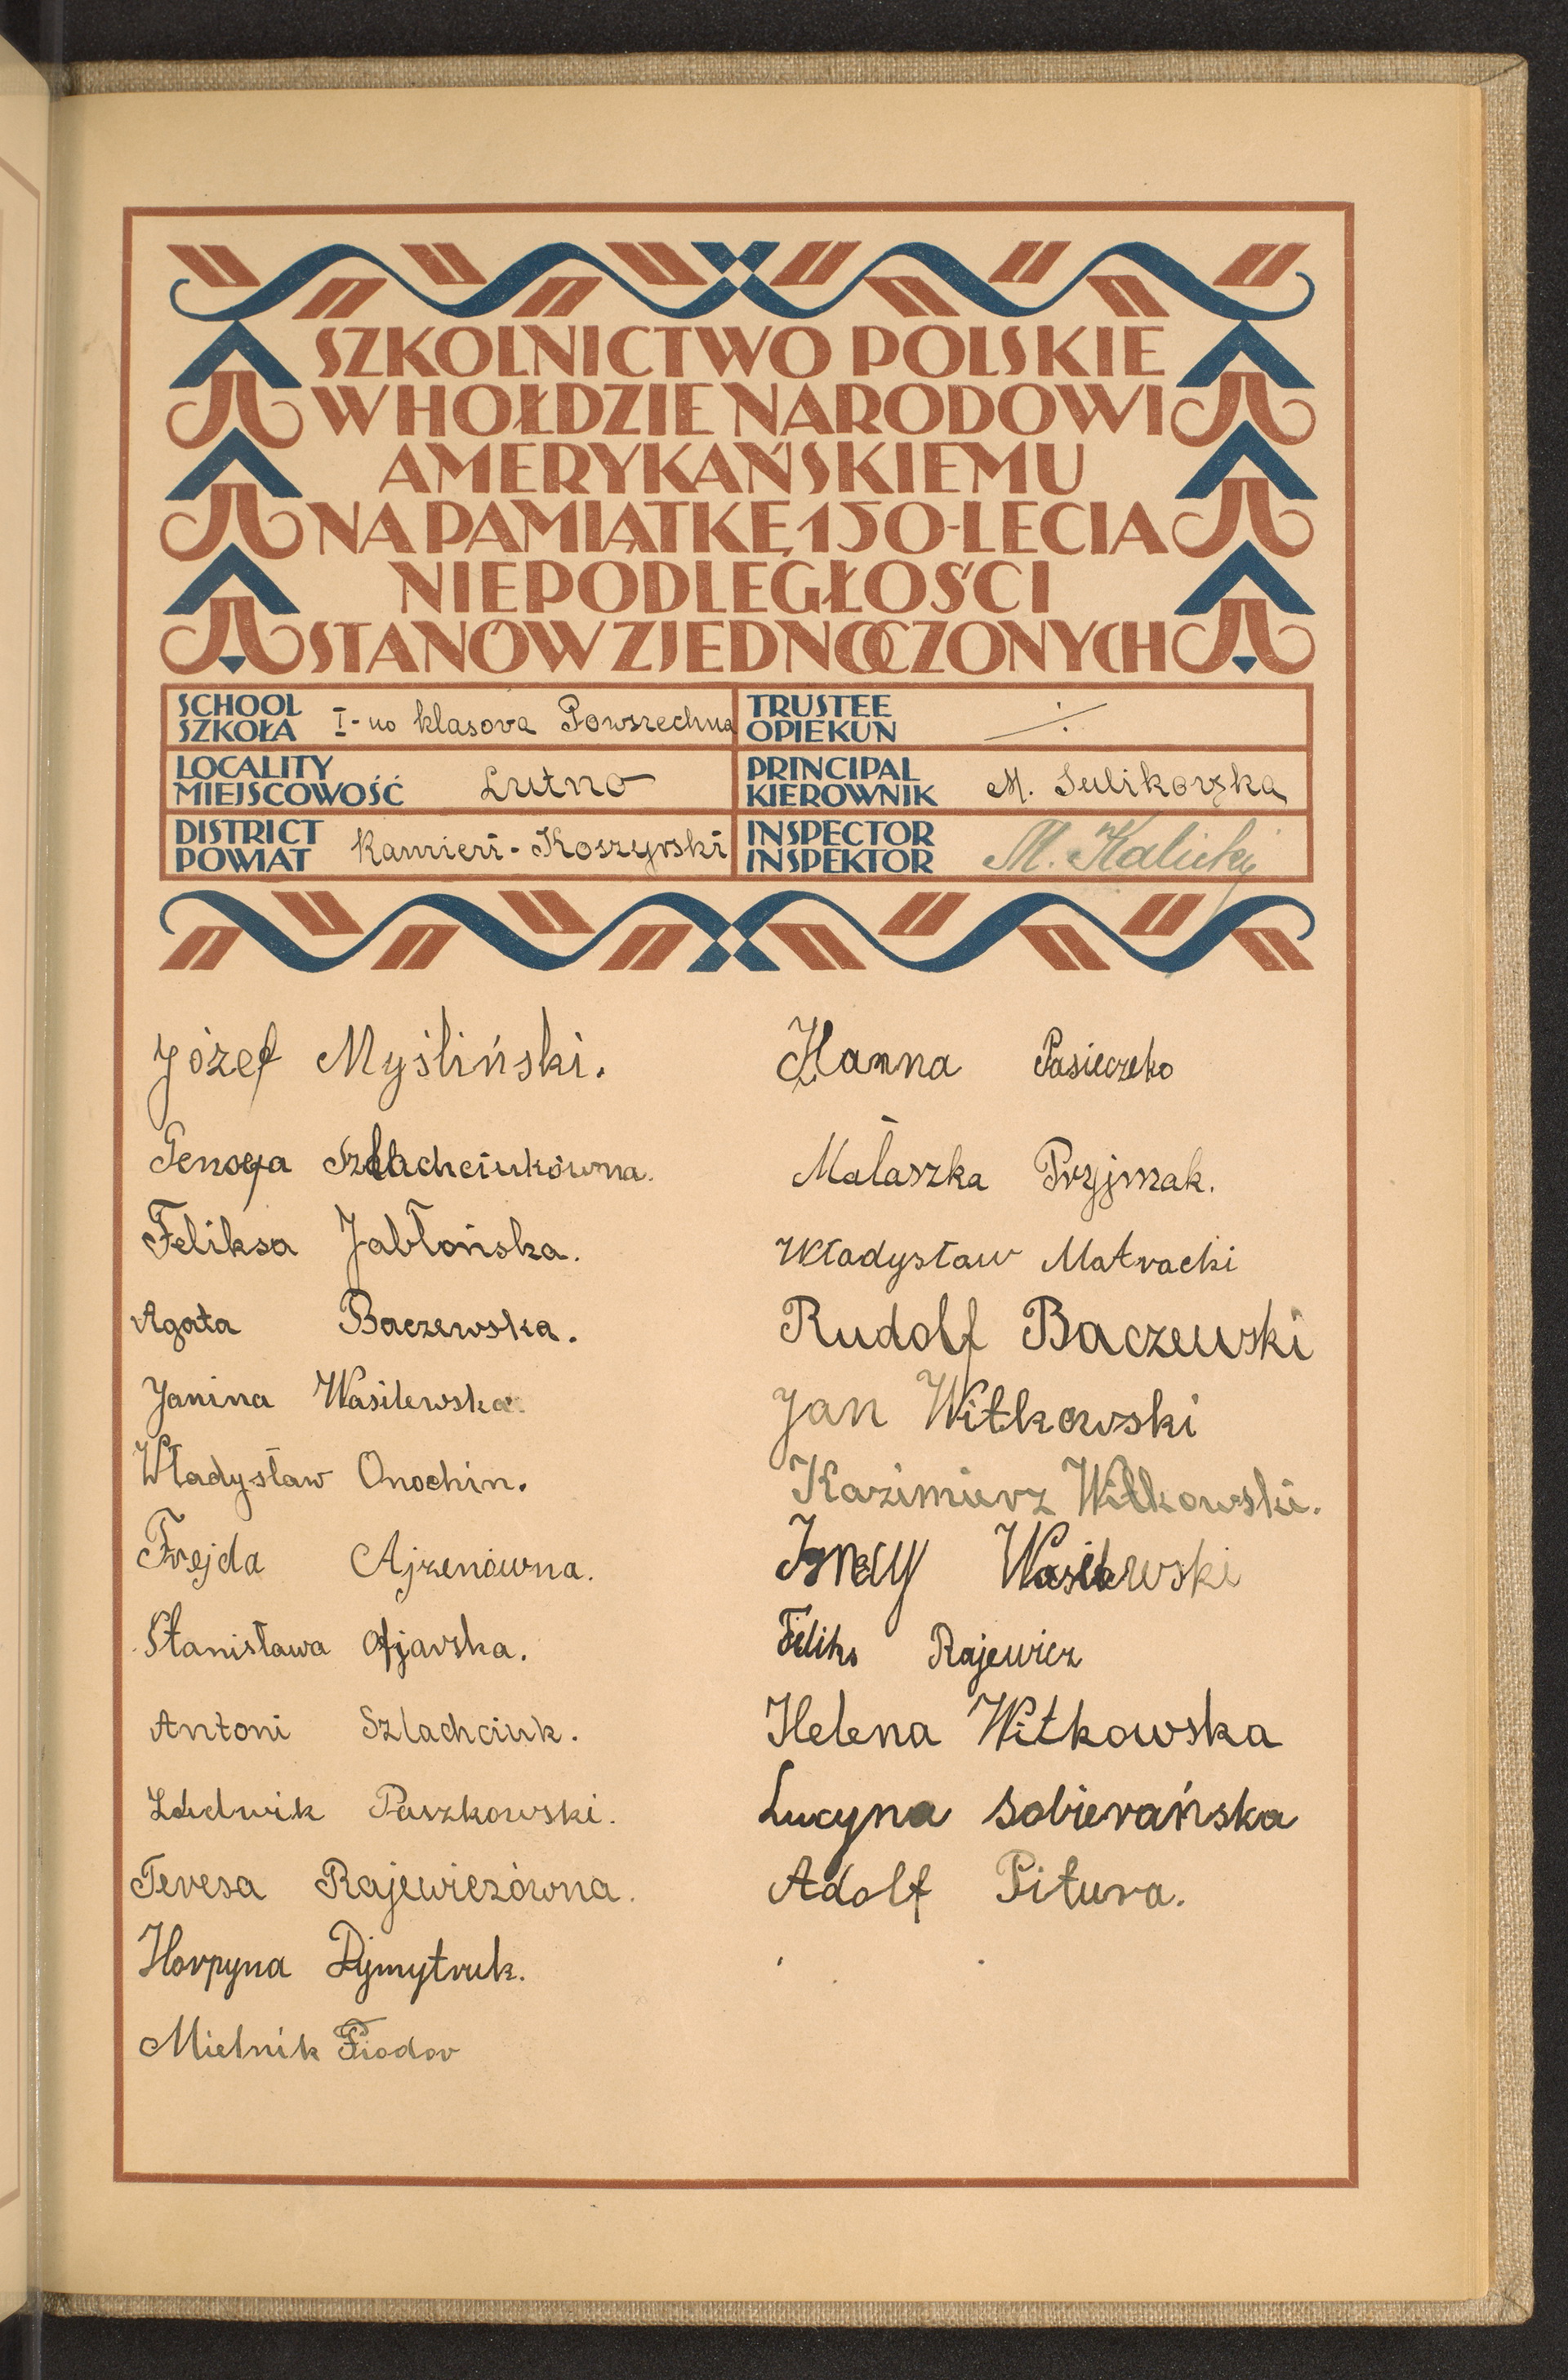 SZKOLNICTWO POLSKIE
W HOŁDZIE NARODOWI
AMERYKAŃSKIEMU
NA PAMIĄTKĘ 150-LECIA
NIEPODLEGŁOŚCI
STANÓW ZJEDNOCZONYCH
SCHOOL
SZKOŁA I-no klasova Powszechna
TRUSTEE
OPIEKUN
LOCALITY
MIEJSCOWOŚĆ Lutno
PRINCIPAL
KIEROWNIK M. Sulikowska
DISTRICT
POWIAT Kamień-Koszyrski
INSPECTOR
INSPEKTOR M. Kalicki
Józef Myśliński.
Genowa Szlachciukówna.
Feliksa Jabłońska.
Agata Baczewska.
Janina Wasilewska.
Władysław Onochin.
Frejda Ajzenówna.
Stanisława
Antoni Szlachciuk.
Ludwik Paszkowski.
Teresa Rajewiczówna.
Horpyna Dymytruk.
Mielnik Fiodor
Hanna Pasieczko
Małaszka Pryjmak.
Władysław Matracki
Rudolf Baczewski
Jan Witkowski
Kazimierz Witkowski.
Ignacy Wasilewski
Feliks Rajewicz
Helena Witkowska
Lucyna Sobierańska
Adolf Pitura.